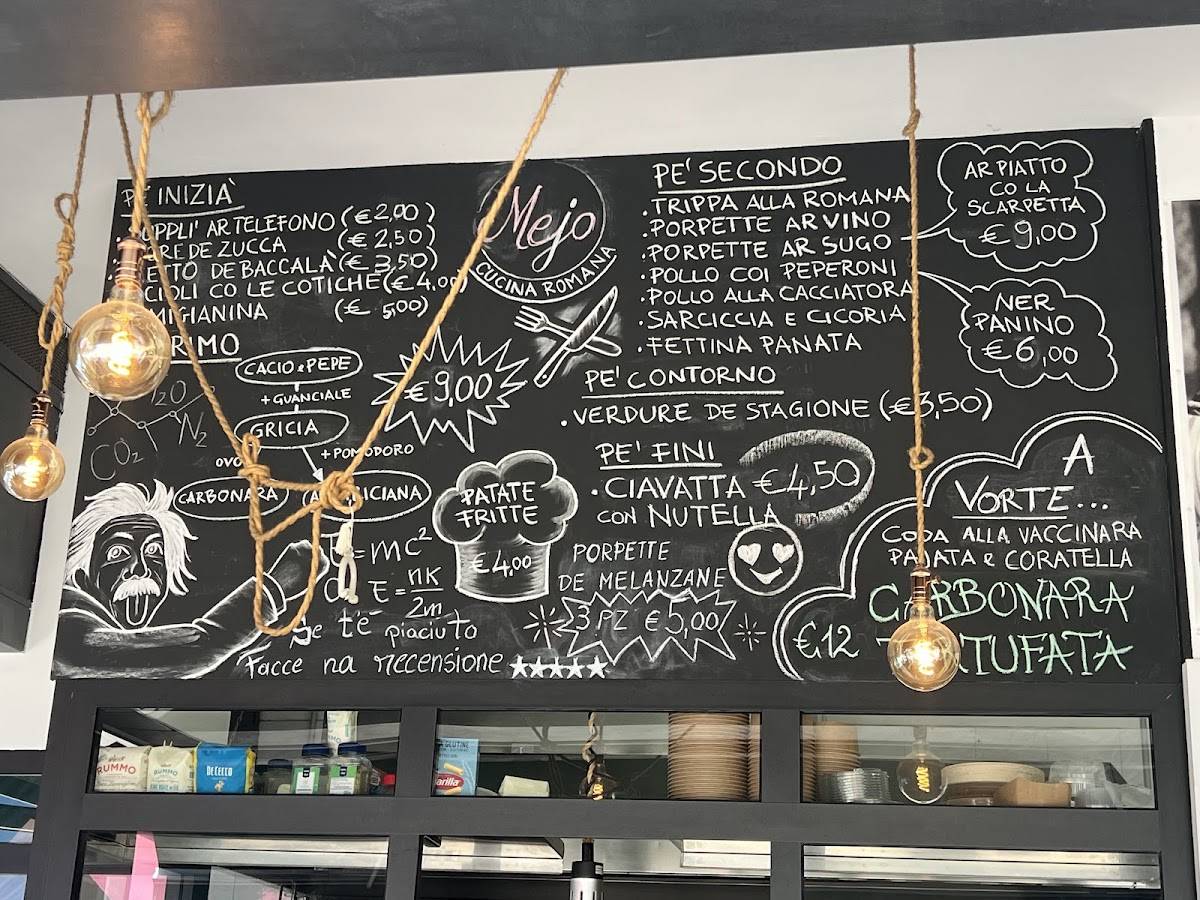 PE' INIZIÀ
AR TELEFONO (€2,00)
DE ZUCCA (€ 2,50)
DE BACCALÀ (€ 3,50)
CO LE COTICHE (€4,00)
(€ 5,00)
CACIO e PEPE
+ GUANCIALE
GRICIA
OVO
+ POMODORO
CARBONARA
€9,00
H2O
N2
CO2
E=mc²
E = nK
2m
Se t'è piaciuto
Facce na recensione ★★★★★
Mejo
CUCINA ROMANA
PATATE
FRITTE
€4,00
PE' SECONDO
• TRIPPA ALLA ROMANA
• PORPETTE AR VINO
• PORPETTE AR SUGO
• POLLO COI PEPERONI
• POLLO ALLA CACCIATORA
• SARCICCIA E CICORIA
• FETTINA PANATA
AR PIATTO
CO LA
SCARPETTA
€ 9,00
NER
PANINO
€ 6,00
PE' CONTORNO
• VERDURE DE STAGIONE (€3,50)
PE' FINI
• CIAVATTA €4,50
CON NUTELLA
PORPETTE
DE MELANZANE
3 PZ €5,00
A
VORTE...
CODA ALLA VACCINARA
PAJATA e CORATELLA
CARBONARA
€12 TARTUFATA
RUMMO
RUMMO
DE CECCO
GLUTINE
Barilla